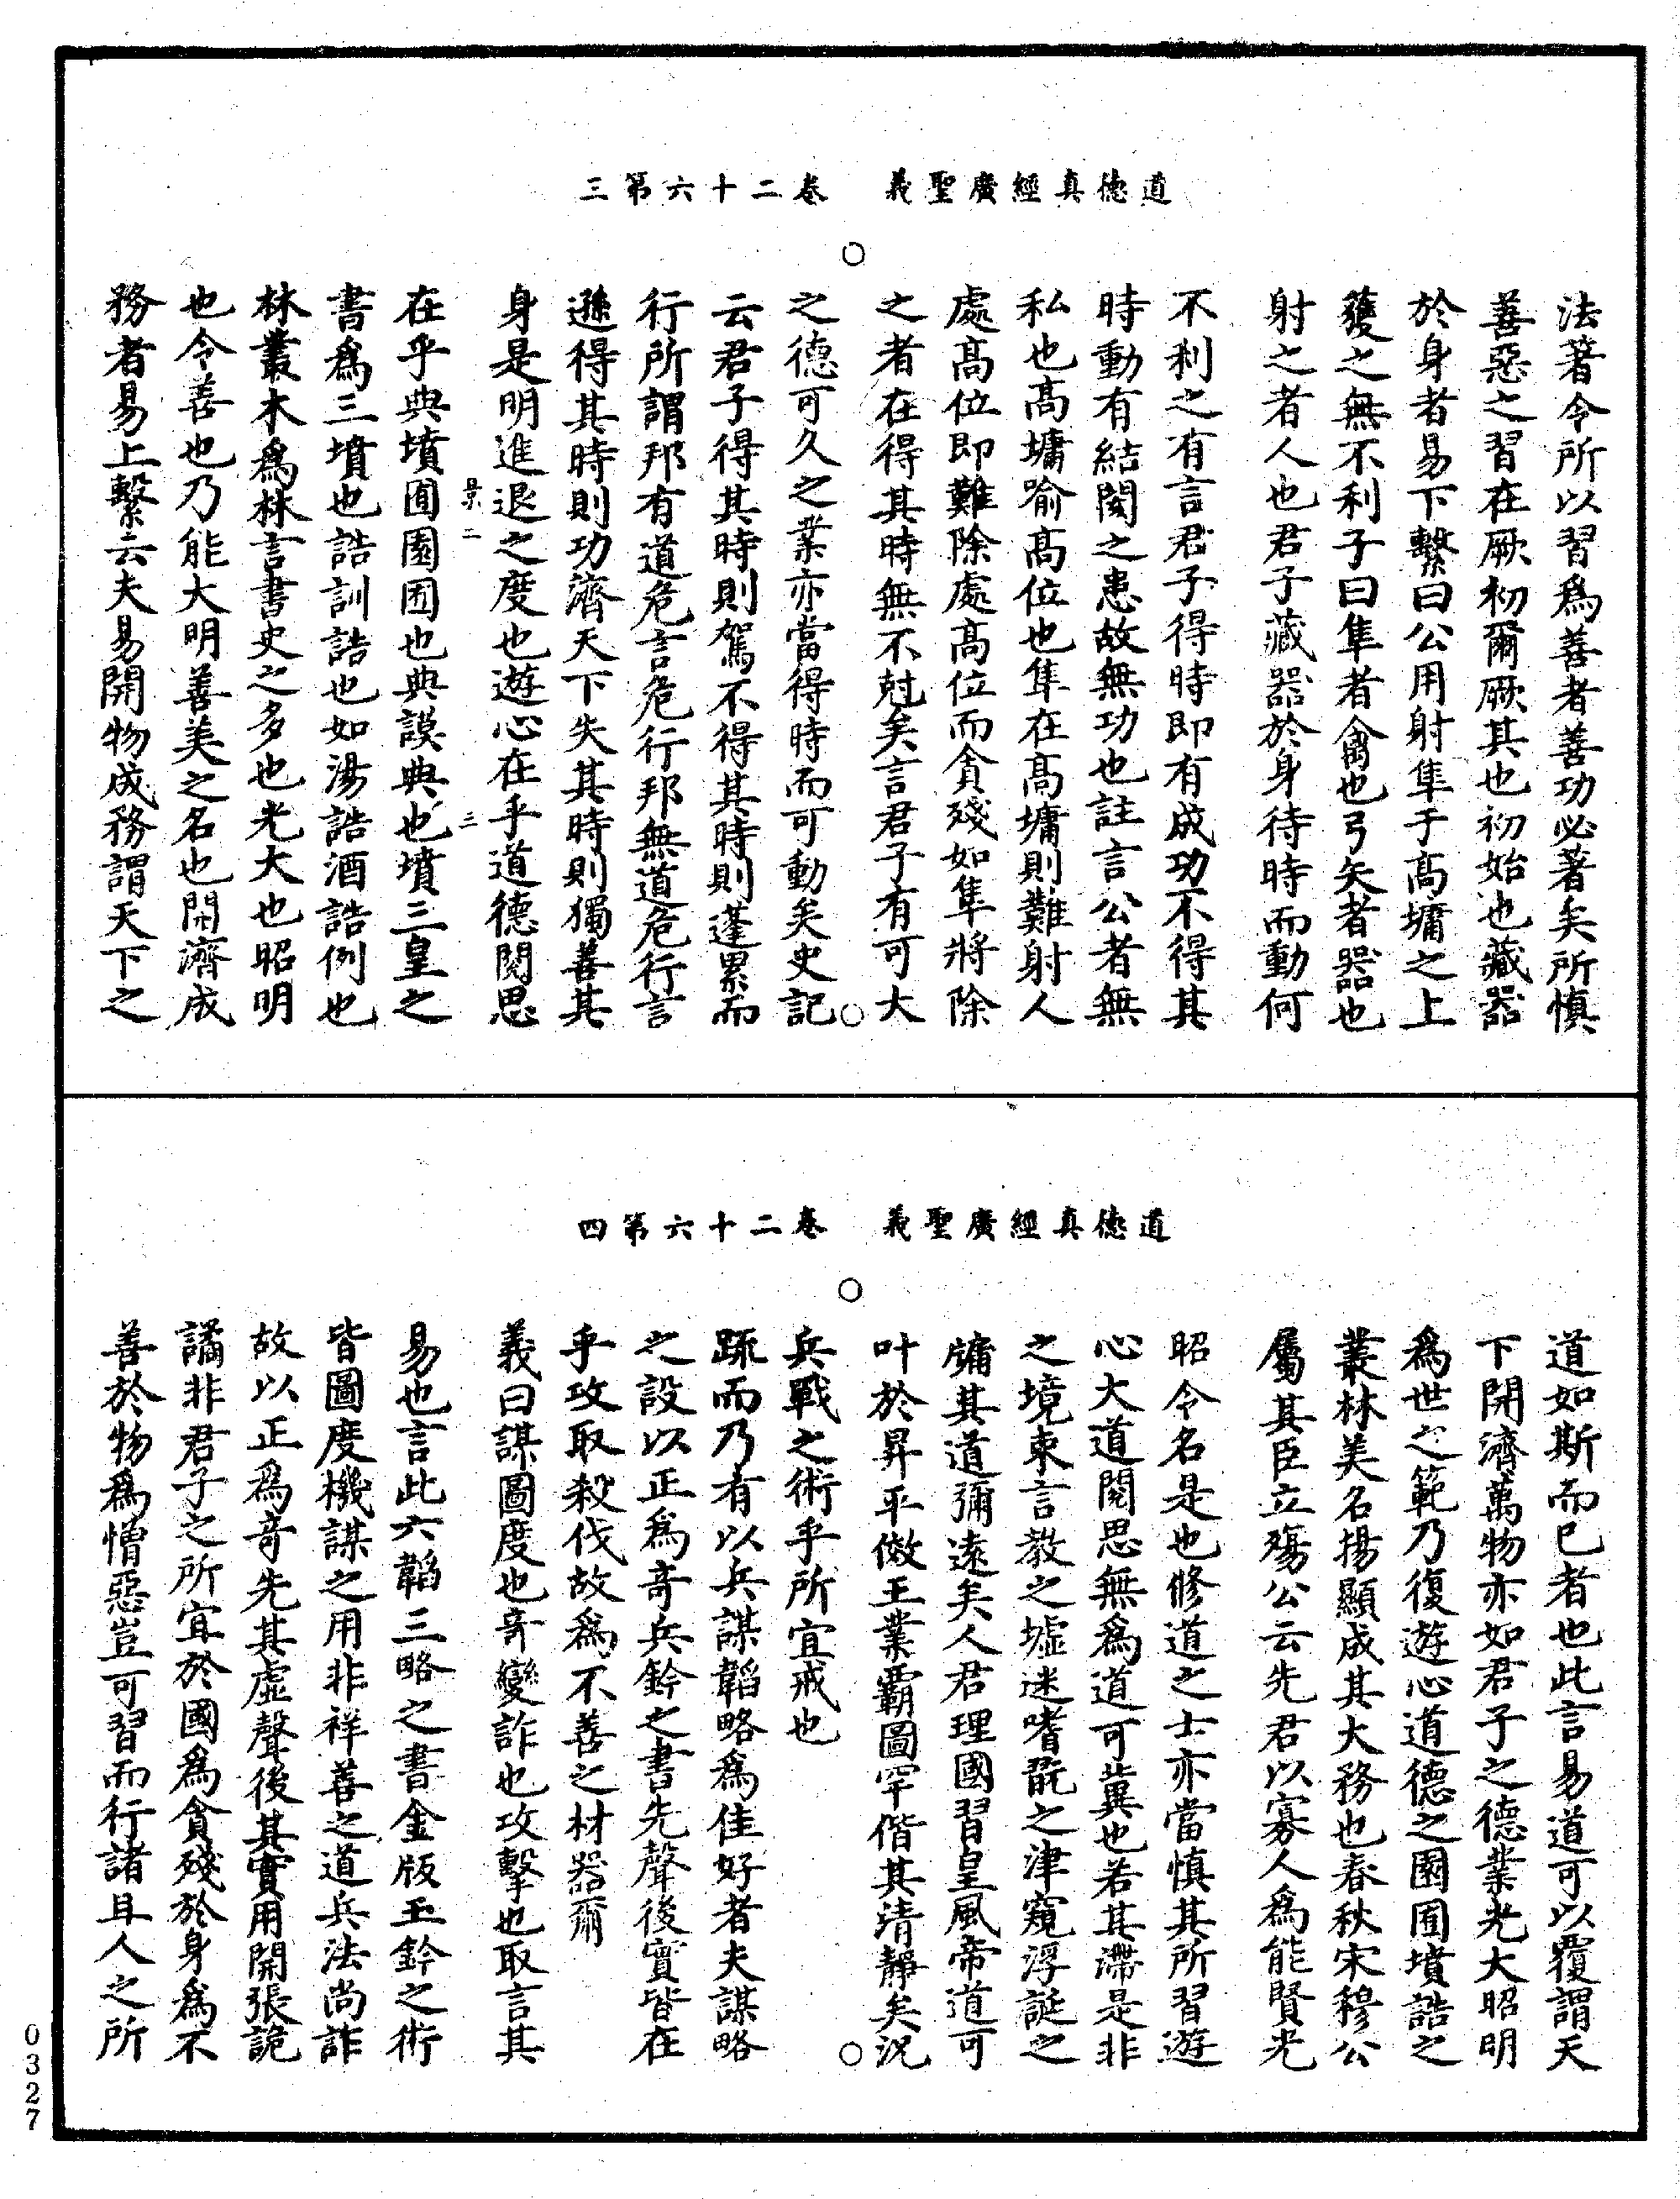 道德真經廣聖義　卷二十六第三
法著令所以習爲善者善功必著矣所慎
善惡之習在厥初爾厥其也初始也藏器
於身者易下繫曰公用射隼于高墉之上
獲之無不利子曰隼者禽也弓矢者器也
射之者人也君子藏器於身待時而動何
不利之有言君子得時即有成功不得其
時動有結閡之患故無功也註言公者無
私也高墉喻高位也隼在高墉則難射人
處高位即難除處高位而貪殘如隼將除
之者在得其時無不尅矣言君子有可大
之德可久之業亦當得時而可動矣史記
云君子得其時則駕不得其時則蓬累而
行所謂邦有道危言危行邦無道危行言
遜得其時則功濟天下失其時則獨善其
身是明進退之度也遊心在乎道德閱思
景二　三
在乎典墳囿園囿也典謨典也墳三皇之
書爲三墳也誥訓誥也如湯誥酒誥例也
林叢木爲林言書史之多也光大也昭明
也令善也乃能大明善美之名也開濟成
務者易上繫云夫易開物成務謂天下之
道德真經廣聖義　卷二十六第四
道如斯而已者也此言易道可以覆謂天
下開濟萬物亦如君子之德業光大昭明
爲世之範乃復遊心道德之園囿墳誥之
叢林美名揚顯成其大務也春秋宋穆公
屬其臣立殤公云先君以寡人爲能賢光
昭令名是也修道之士亦當慎其所習遊
心大道閱思無爲道可冀也若其滯是非
之境束言教之墟迷嗜翫之津窺浮誕之
牗其道彌遠矣人君理國習皇風帝道可
叶於昇平儌王業霸圖罕偕其清靜矣況
兵戰之術乎所宜戒也
䟽而乃有以兵謀韜略爲佳好者夫謀略
之設以正爲奇兵鈐之書先聲後實皆在
乎攻取殺伐故爲不善之材器爾
義曰謀圖度也奇變詐也攻擊也取言其
易也言此六韜三略之書金版玉鈐之術
皆圖度機謀之用非祥善之道兵法尚詐
故以正爲奇先其虛聲後其實用開張詭
譎非君子之所宜於國爲貪殘於身爲不
善於物爲憎惡豈可習而行諸且人之所
0327